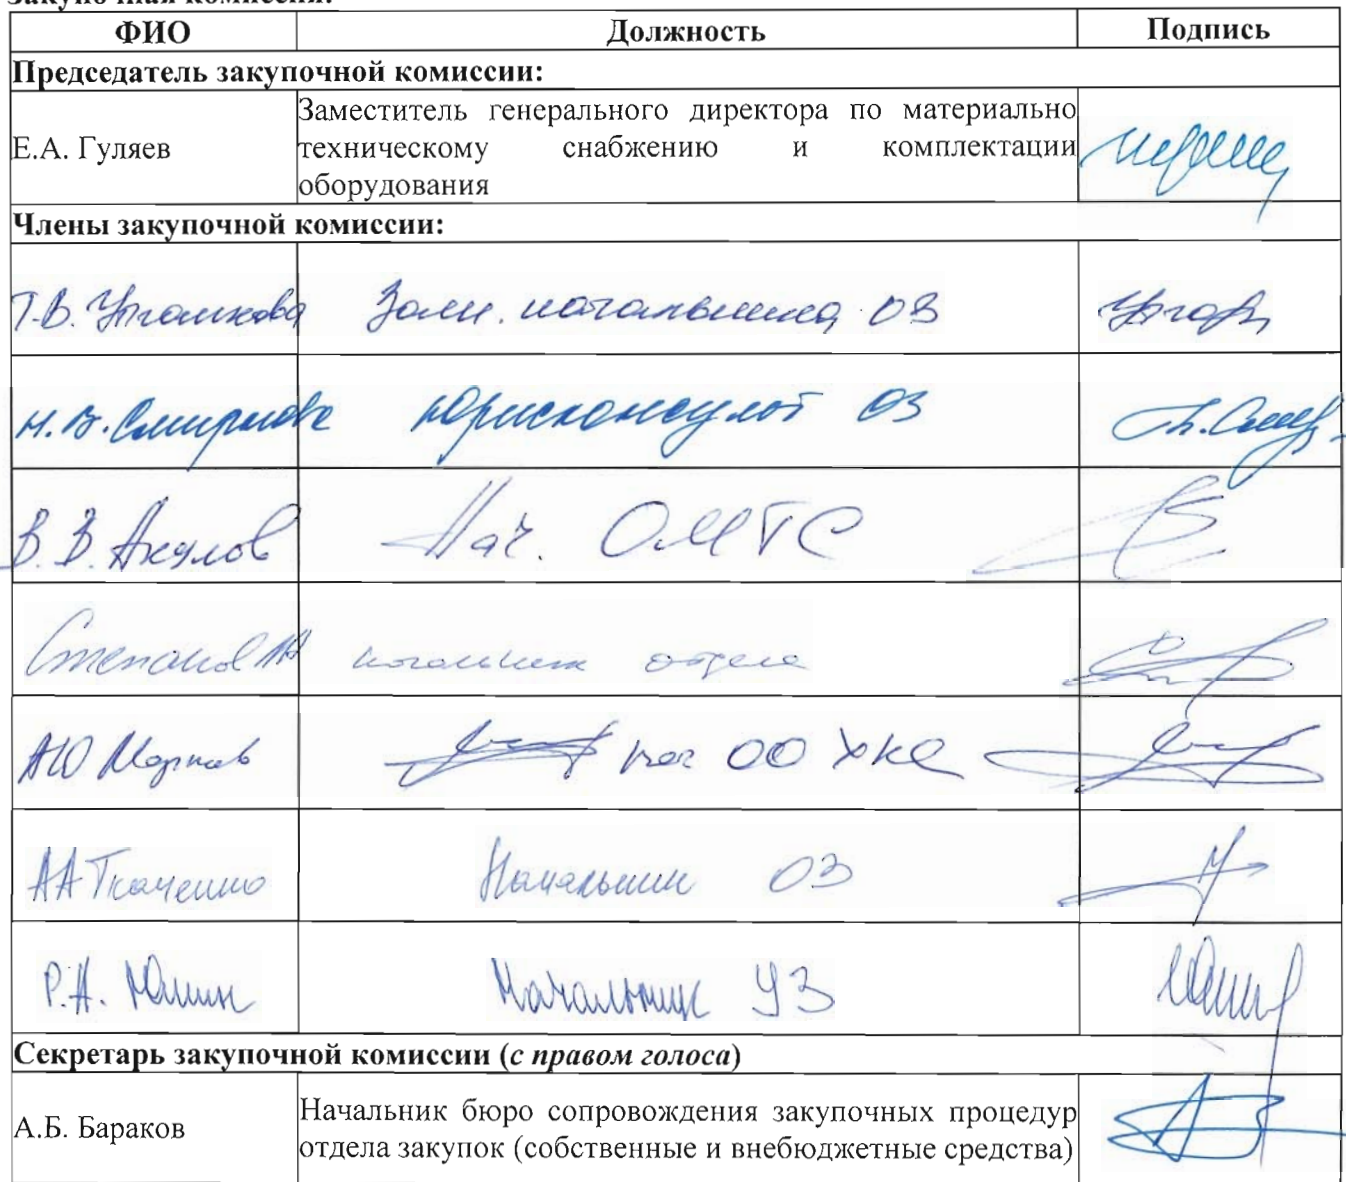 ФИО Должность Подпись
Председатель закупочной комиссии:
Е.А. Гуляев
Заместитель генерального директора по материально
техническому снабжению и комплектации
оборудования
Члены закупочной комиссии:
Т.В. Зам. начальника ОЗ
Н.В. Смирнова Юрисконсульт ОЗ
В.В. Акулов Нач. ОМТС
Степанов начальник отдела
АЮ нач ОО ХКС
АА Ткаченко Начальник ОЗ
Р.А. Юшин Начальник УЗ
Секретарь закупочной комиссии (с правом голоса)
А.Б. Бараков
Начальник бюро сопровождения закупочных процедур
отдела закупок (собственные и внебюджетные средства)